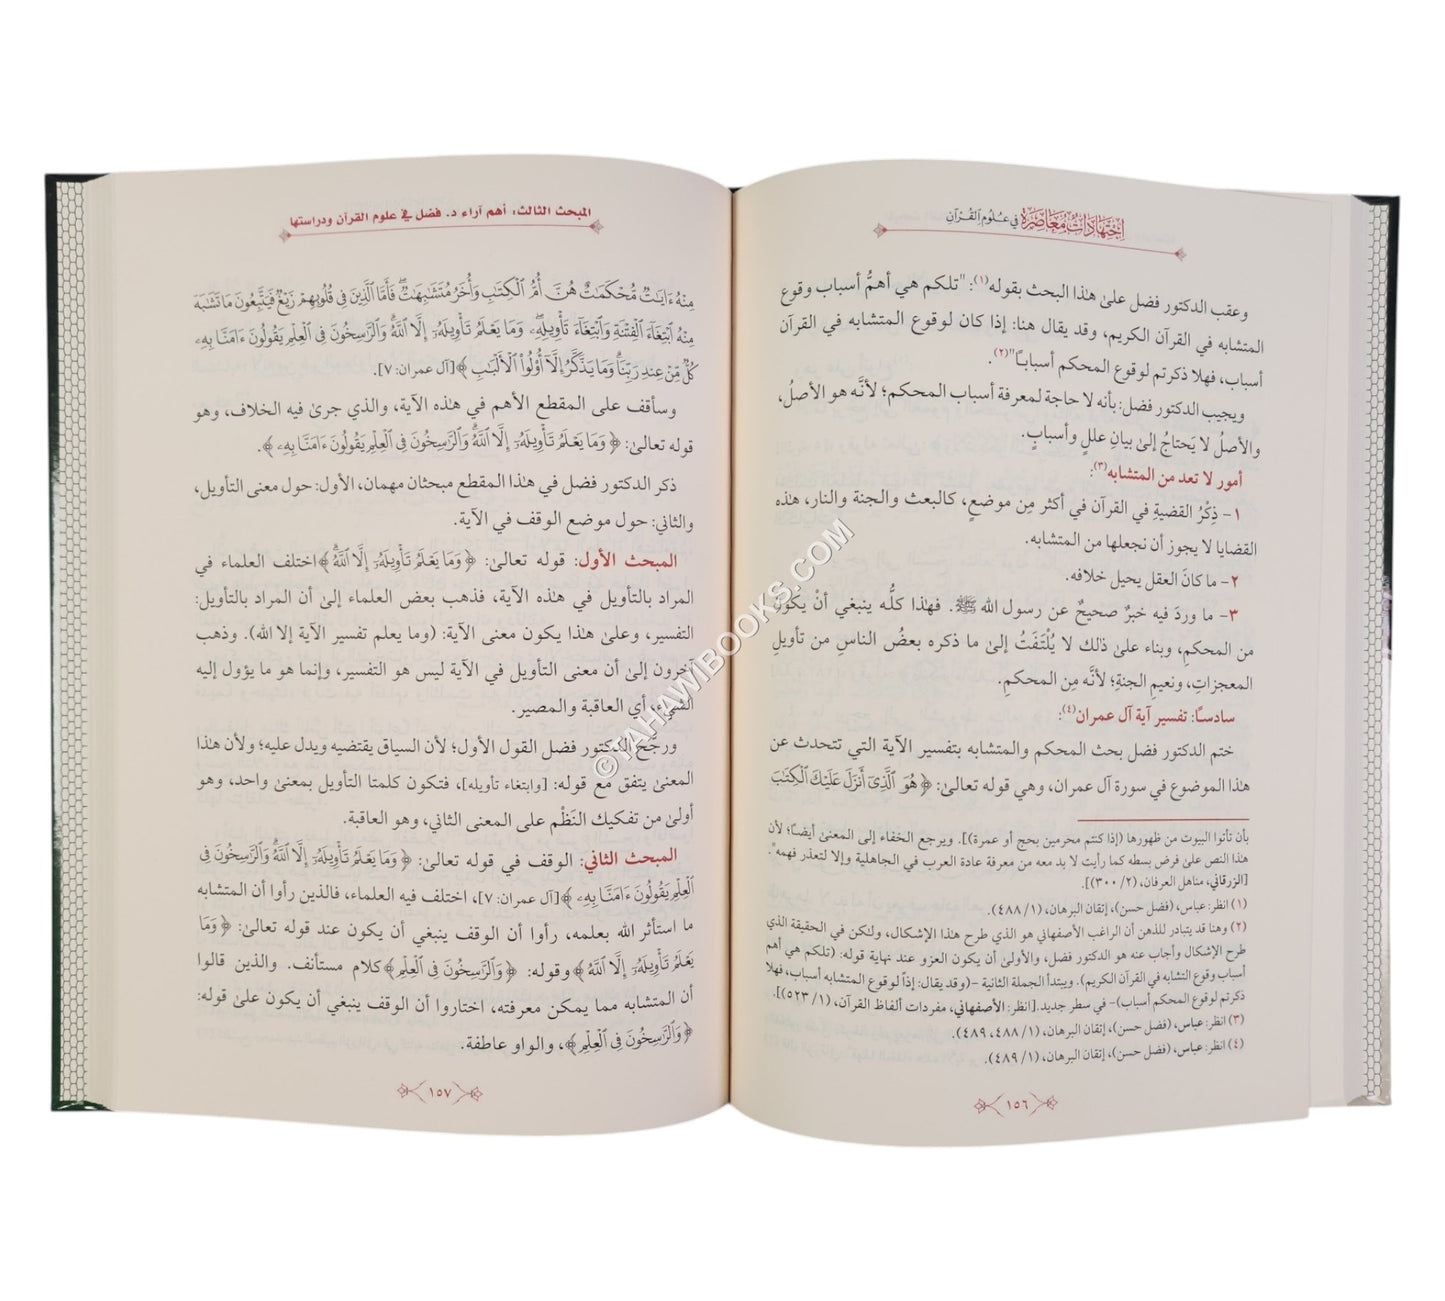 اجتهادات معاصرة في علوم القرآن
وعقب الدكتور فضل علىٰ هٰذا البحث بقوله(١): "تلكم هي أهمُّ أسباب وقوع
المتشابه في القرآن الكريم، وقد يقال هنا: إذا كان لوقوع المتشابه في القرآن
أسباب، فهلا ذكرتم لوقوع المحكم أسبابًا"(٢).
ويجيب الدكتور فضل: بأنه لا حاجة لمعرفة أسباب المحكم؛ لأنَّه هو الأصلُ،
والأصلُ لا يَحتاجُ إلىٰ بيانِ عللٍ وأسبابٍ.
أمور لا تعد من المتشابه(٣):
١- ذِكْرُ القضيةِ في القرآن في أكثر مِن موضعٍ، كالبعث والجنة والنار، هٰذه
القضايا لا يجوز أن نجعلها من المتشابه.
٢- ما كانَ العقل يحيل خلافه.
٣- ما وردَ فيه خبرٌ صحيحٌ عن رسول الله ﷺ. فهٰذا كلُّه ينبغي أنْ يكونَ
من المحكمِ، وبناء علىٰ ذلك لا يُلْتَفَتُ إلىٰ ما ذكره بعضُ الناسِ من تأويلِ
المعجزاتِ، ونعيمِ الجنةِ؛ لأنَّه مِن المحكمِ.
سادسًا: تفسير آية آل عمران(٤):
ختم الدكتور فضل بحث المحكم والمتشابه بتفسير الآية التي تتحدث عن
هٰذا الموضوع في سورة آل عمران، وهي قوله تعالىٰ: ﴿هُوَ ٱلَّذِىٓ أَنزَلَ عَلَيْكَ ٱلْكِتَـٰبَ
بأن تأتوا البيوت من ظهورها (إذا كنتم محرمين بحج أو عمرة)]. ويرجع الخفاء إلى المعنىٰ أيضًا؛ لأن
هٰذا النص علىٰ فرض بسطه كما رأيت لا بد معه من معرفة عادة العرب في الجاهلية وإلا لتعذر فهمه".
[الزرقاني، مناهل العرفان، (٢/ ٣٠٠)].
(١) انظر: عباس، (فضل حسن)، إتقان البرهان، (١/ ٤٨٨).
(٢) وهنا قد يتبادر للذهن أن الراغب الأصفهاني هو الذي طرح هٰذا الإشكال، ولٰكن في الحقيقة الذي
طرح الإشكال وأجاب عنه هو الدكتور فضل، والأولىٰ أن يكون العزو عند نهاية قوله: (تلكم هي أهم
أسباب وقوع التشابه في القرآن الكريم). ويبتدأ الجملة الثانية -(وقد يقال: إذاً لوقوع المتشابه أسباب، فهلا
ذكرتم لوقوع المحكم أسباب)- في سطر جديد.[انظر: الأصفهاني، مفردات ألفاظ القرآن، (١/ ٥٢٣)].
(٣) انظر: عباس، (فضل حسن)، إتقان البرهان، (١/ ٤٨٨، ٤٨٩).
(٤) انظر: عباس، (فضل حسن)، إتقان البرهان، (١/ ٤٨٩).
١٥٦
المبحث الثالث: أهم آراء د. فضل في علوم القرآن ودراستها
مِنْهُ ءَايَـٰتٌ مُّحْكَمَـٰتٌ هُنَّ أُمُّ ٱلْكِتَـٰبِ وَأُخَرُ مُتَشَـٰبِهَـٰتٌ ۖ فَأَمَّا ٱلَّذِينَ فِى قُلُوبِهِمْ زَيْغٌ فَيَتَّبِعُونَ مَا تَشَـٰبَهَ
مِنْهُ ٱبْتِغَآءَ ٱلْفِتْنَةِ وَٱبْتِغَآءَ تَأْوِيلِهِۦ ۗ وَمَا يَعْلَمُ تَأْوِيلَهُۥٓ إِلَّا ٱللَّهُ ۗ وَٱلرَّٰسِخُونَ فِى ٱلْعِلْمِ يَقُولُونَ ءَامَنَّا بِهِۦ
كُلٌّ مِّنْ عِندِ رَبِّنَا ۗ وَمَا يَذَّكَّرُ إِلَّآ أُو۟لُوا۟ ٱلْأَلْبَـٰبِ﴾[آل عمران: ٧].
وسأقف على المقطع الأهم في هٰذه الآية، والذي جرىٰ فيه الخلاف، وهو
قوله تعالىٰ: ﴿وَمَا يَعْلَمُ تَأْوِيلَهُۥٓ إِلَّا ٱللَّهُ ۗ وَٱلرَّٰسِخُونَ فِى ٱلْعِلْمِ يَقُولُونَ ءَامَنَّا بِهِۦ﴾.
ذكر الدكتور فضل في هٰذا المقطع مبحثان مهمان، الأول: حول معنى التأويل،
والثاني: حول موضع الوقف في الآية.
المبحث الأول: قوله تعالىٰ: ﴿وَمَا يَعْلَمُ تَأْوِيلَهُۥٓ إِلَّا ٱللَّهُ ۗ﴾اختلف العلماء في
المراد بالتأويل في هٰذه الآية، فذهب بعض العلماء إلىٰ أن المراد بالتأويل:
التفسير، وعلىٰ هٰذا يكون معنى الآية: (وما يعلم تفسير الآية إلا الله). وذهب
آخرون إلىٰ أن معنى التأويل في الآية ليس هو التفسير، وإنما هو ما يؤول إليه
الشيء، أي العاقبة والمصير.
ورجح الدكتور فضل القول الأول؛ لأن السياق يقتضيه ويدل عليه؛ ولأن هٰذا
المعنىٰ يتفق مع قوله: [وابتغاء تأويله]، فتكون كلمتا التأويل بمعنى واحد، وهو
أولىٰ من تفكيك النَظْم على المعنى الثاني، وهو العاقبة.
المبحث الثاني: الوقف في قوله تعالىٰ: ﴿وَمَا يَعْلَمُ تَأْوِيلَهُۥٓ إِلَّا ٱللَّهُ ۗ وَٱلرَّٰسِخُونَ فِى
ٱلْعِلْمِ يَقُولُونَ ءَامَنَّا بِهِۦ﴾[آل عمران: ٧]، اختلف فيه العلماء، فالذين رأوا أن المتشابه
ما استأثر الله بعلمه، رأوا أن الوقف ينبغي أن يكون عند قوله تعالىٰ: ﴿وَمَا
يَعْلَمُ تَأْوِيلَهُۥٓ إِلَّا ٱللَّهُ﴾وقوله: ﴿وَٱلرَّٰسِخُونَ فِى ٱلْعِلْمِ﴾كلام مستأنف. والذين قالوا
أن المتشابه مما يمكن معرفته، اختاروا أن الوقف ينبغي أن يكون علىٰ قوله:
﴿وَٱلرَّٰسِخُونَ فِى ٱلْعِلْمِ﴾، والواو عاطفة.
١٥٧
©TAHAWIBOOKS.COM